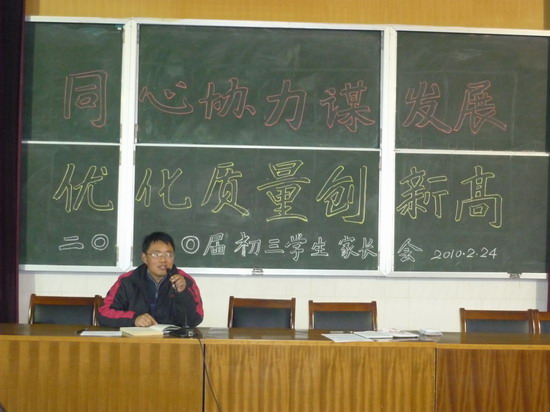 同心协力谋发展
优化质量创新高
二〇 〇届初三学生家长会 2010.2.24